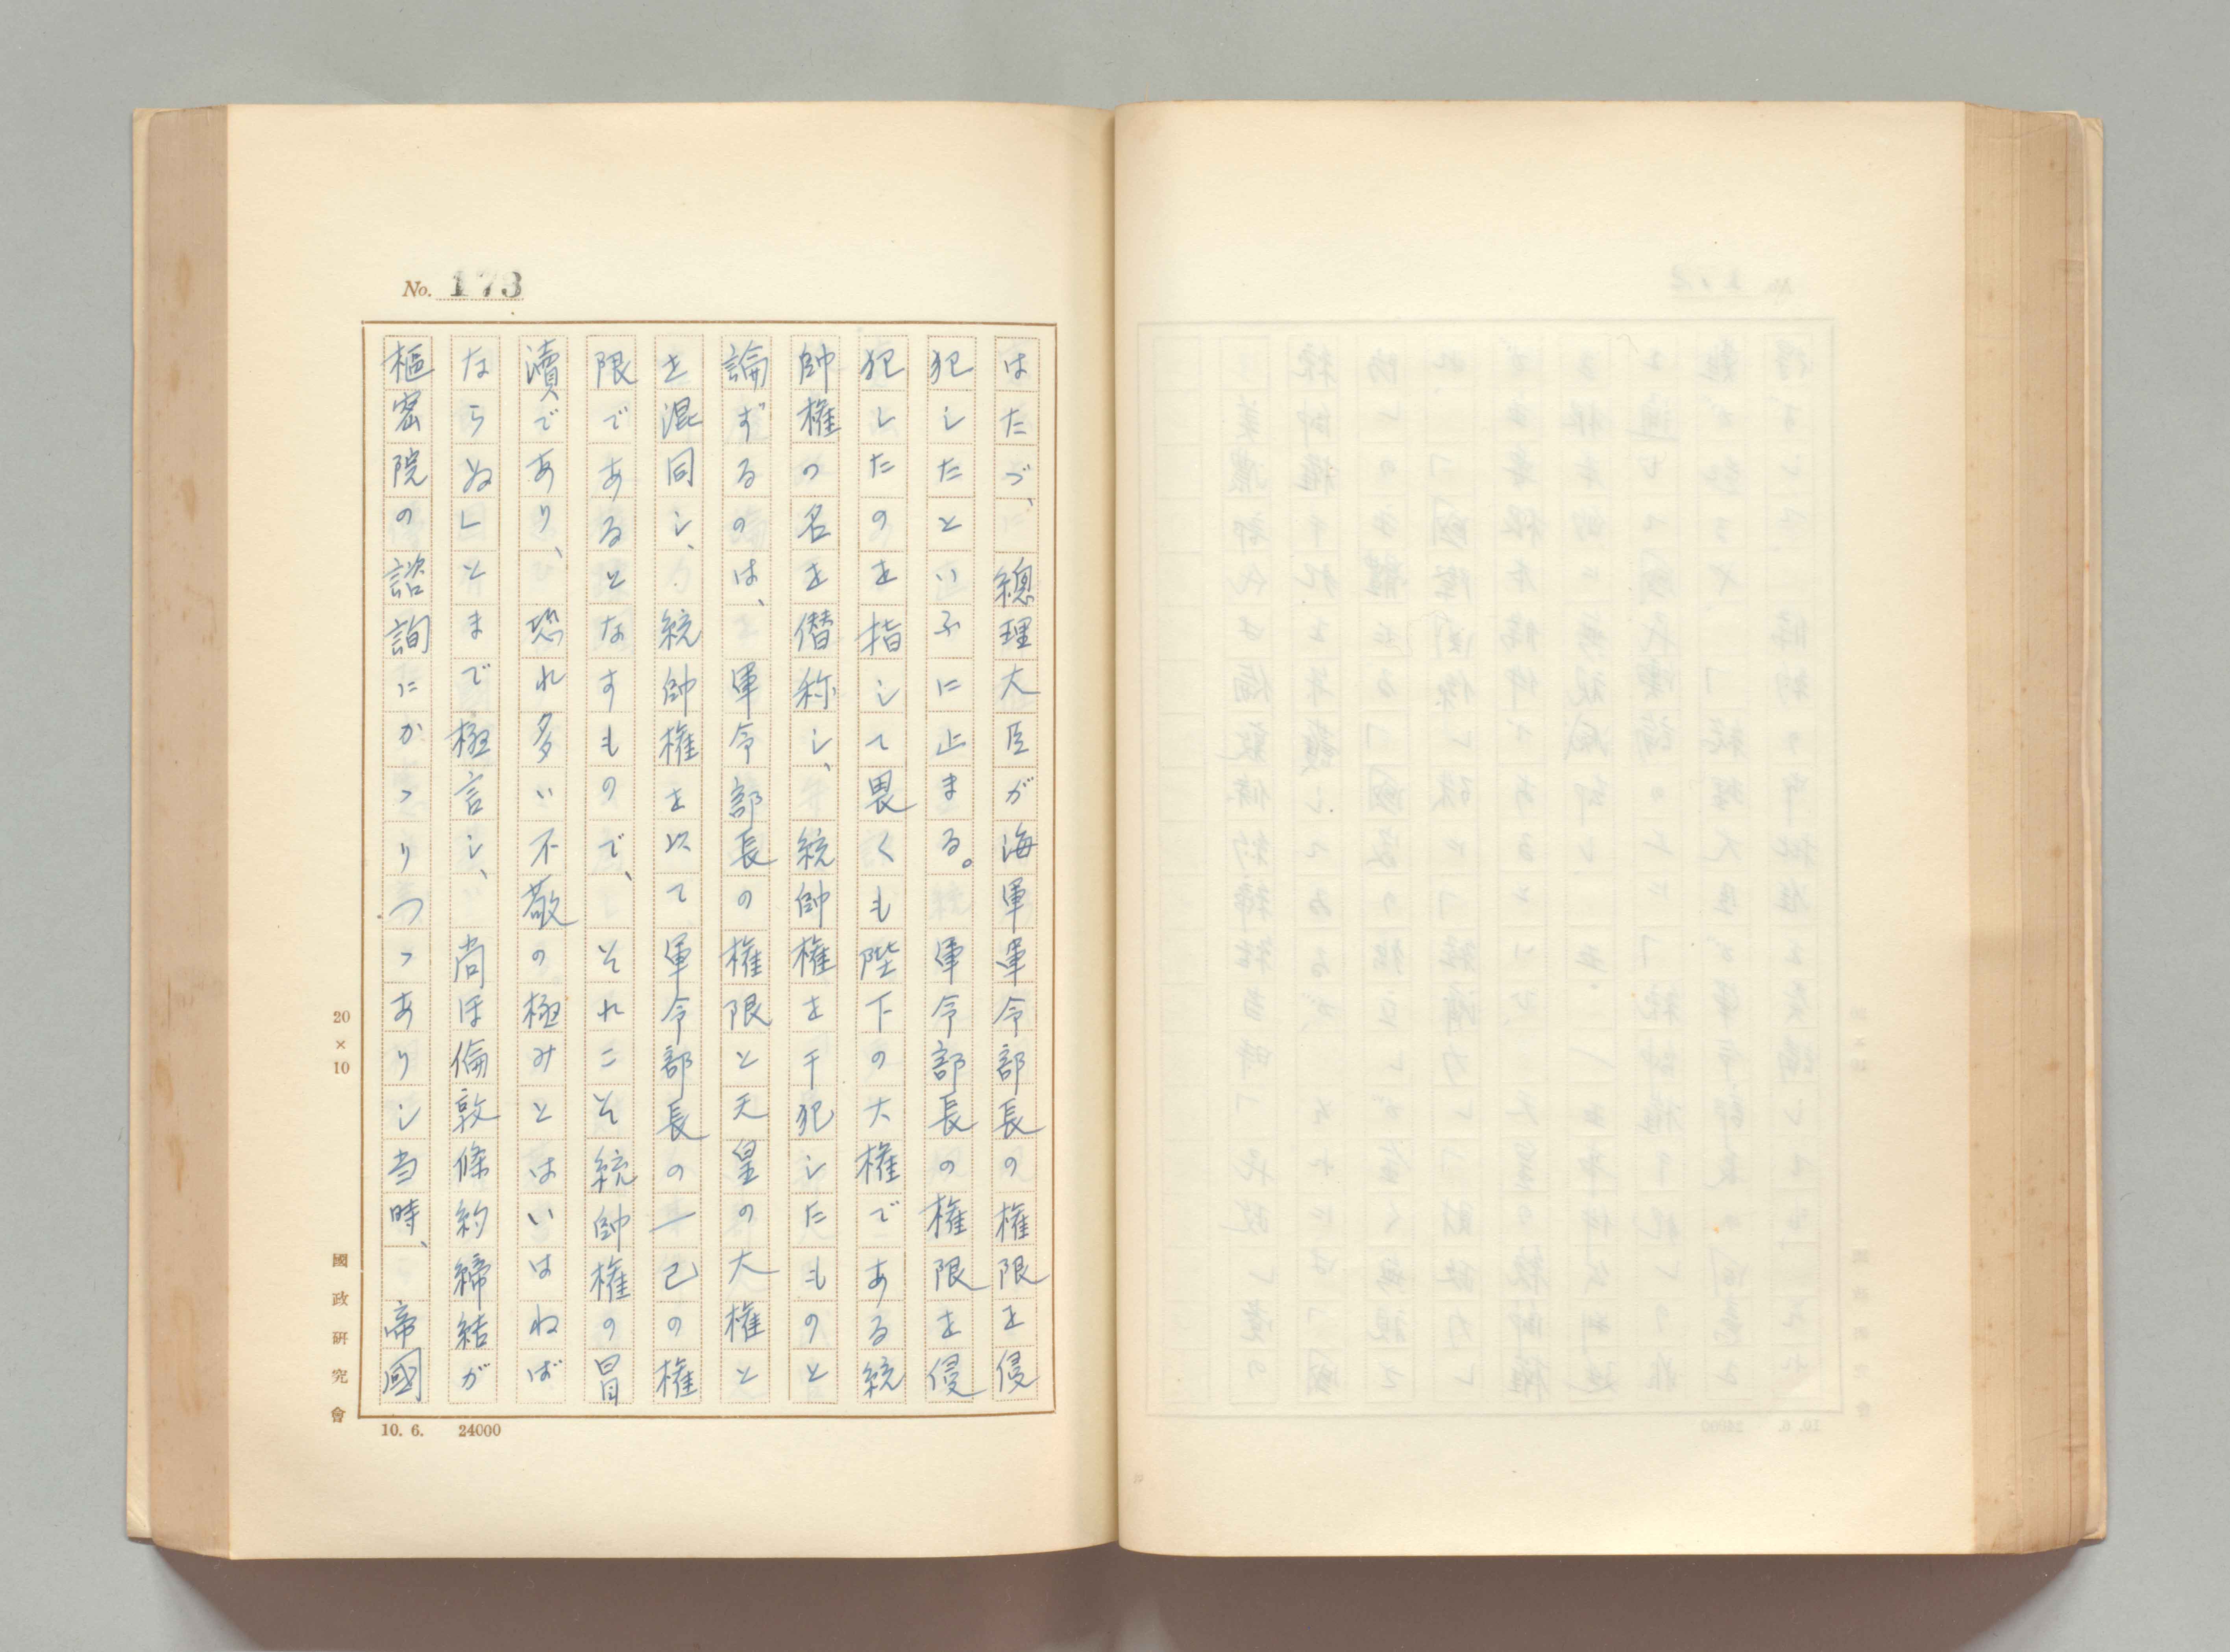 No. 173
はたゞ、總理大臣が海軍軍令部長の権限を侵
犯したといふに止まる。軍令部長の権限を侵
犯したのを指して畏くも陛下の大権である統
帥権の名を僭称し、統帥権を干犯したものと
論ずるのは、軍令部長の権限と天皇の大権と
を混同し、統帥権を以て軍令部長の一己の権
限であるとなすもので、それこそ統帥権の冒
瀆であり、恐れ多い不敬の極みとはいはねば
ならぬ」とまで極言し、尚ほ倫敦條約締結が
樞密院の諮詢にかゝりつゝありし当時、帝國
20×10
國政研究會
10. 6. 24000